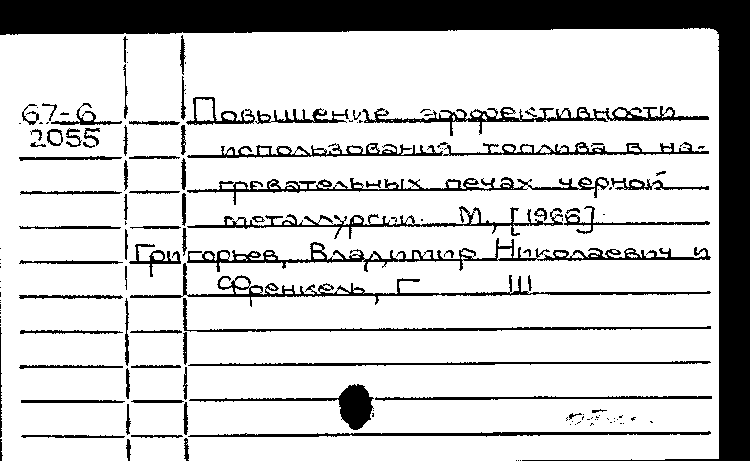 67-6 Повышение эффективности
2055 использования топлива в на-
гревательных печах черной
металлургии. М., [1966].
Григорьев, Владимир Николаевич и
Френкель, Г Ш